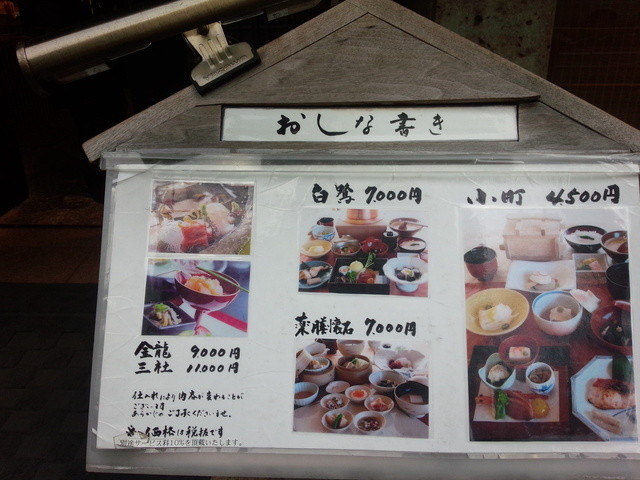 おしな書き
白鷺 7.000円
小町 4.500円
薬膳懐石 7.000円
金龍 9000円
三社 11.000円
仕入れにより内容が変わることが
ございます
あらかじめ ご了承くださいませ。
※価格は税抜です
別途サービス料10％を頂戴いたします。